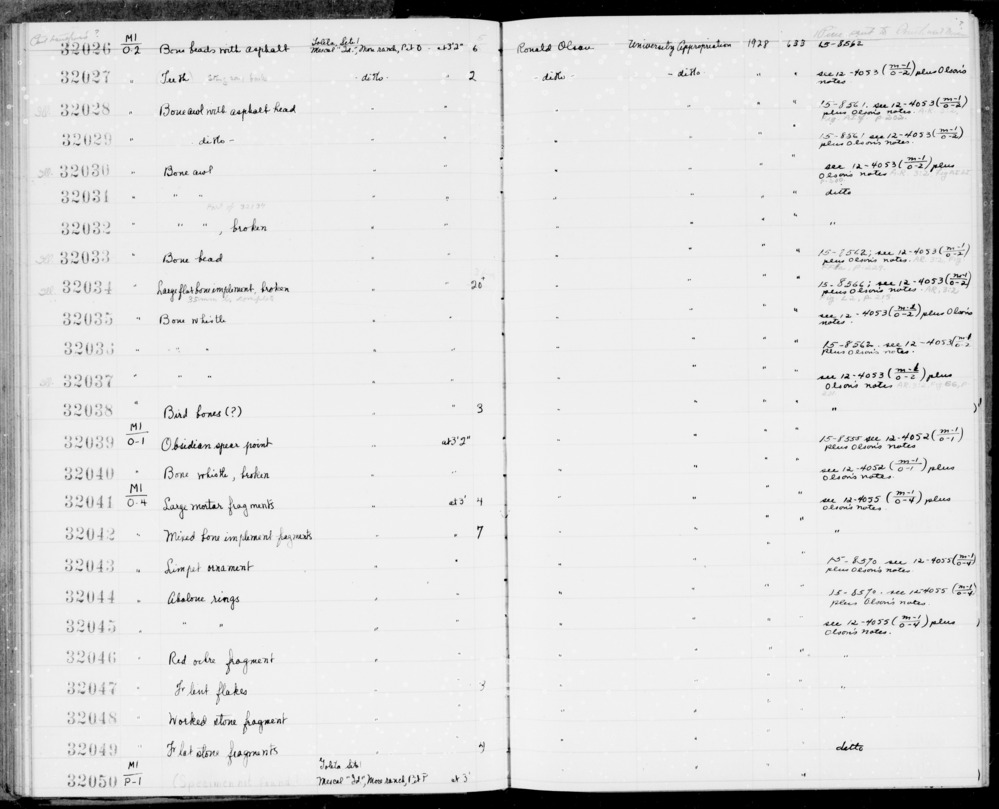 32026 M1/O-2 Bone beads with asphalt Goleta Site 1 Mescal "Id", More ranch, Pit O at 3'2" 6 Ronald Olson University Appropriation 1928 633 15-8562
32027 " Teeth ditto " 2 ditto ditto " " see 12-4053 (m-1/O-2) plus Olson's notes
32028 " Bone awl with asphalt head " " " " " " 15-8561. see 12-4053 (m-1/O-2) plus Olson's notes.
32029 " ditto " " " " " " 15-8561 see 12-4053 (m-1/O-2) plus Olson's notes.
32030 " Bone awl " " " " " " see 12-4053 (m-1/O-2) plus Olson's notes
32031 " " " " " " " " " ditto
part of 32034
32032 " " " , broken " " " " " " "
32033 " Bone bead " " " " " " 15-8562; see 12-4053 (m-1/O-2) plus Olson's notes.
32034 " Large flat bone implement, broken " " 20 " " " " 15-8566; see 12-4053 (m-1/O-2) plus Olson's notes.
32035 " Bone whistle " " " " " " see 12-4053 (m-1/O-2) plus Olson's notes.
32036 " " " " " " " " " 15-8562. see 12-4053 (m-1/O-2 plus Olson's notes.
32037 " " " " " " " " " see 12-4053 (m-1/O-2) plus Olson's notes
32038 " Bird bones (?) " " 3 " " " " "
32039 M1/O-1 Obsidian spear point " at 3'2" " " " " 15-8555 see 12-4052 (m-1/O-1) plus Olson's notes
32040 " Bone whistle, broken " " " " " " see 12-4052 (m-1/O-1) plus Olson's notes.
32041 M1/O-4 Large mortar fragments " at 3' 4 " " " " see 12-4055 (m-1/O-4) plus Olson's notes.
32042 " Mixed bone implement fragments " " 7 " " " " "
32043 " Limpet ornament " " " " " " 15-8570 see 12-4055 (m-1/O-4) plus Olson's notes.
32044 " Abalone rings " " " " " " 15-8570. see 12-4055 (m-1/O-4) plus Olson's notes.
32045 " " " " " " " " " see 12-4055 (m-1/O-4) plus Olson's notes.
32046 " Red ochre fragment " " " " " " "
32047 " Flint flakes " " 3 " " " " "
32048 " Worked stone fragment " " " " " " "
32049 " Flat stone fragments " " 4 " " " " ditto
32050 M1/P-1 Goleta Site 1 Mescal "Id", More ranch, Pit P at 3' " " " " "